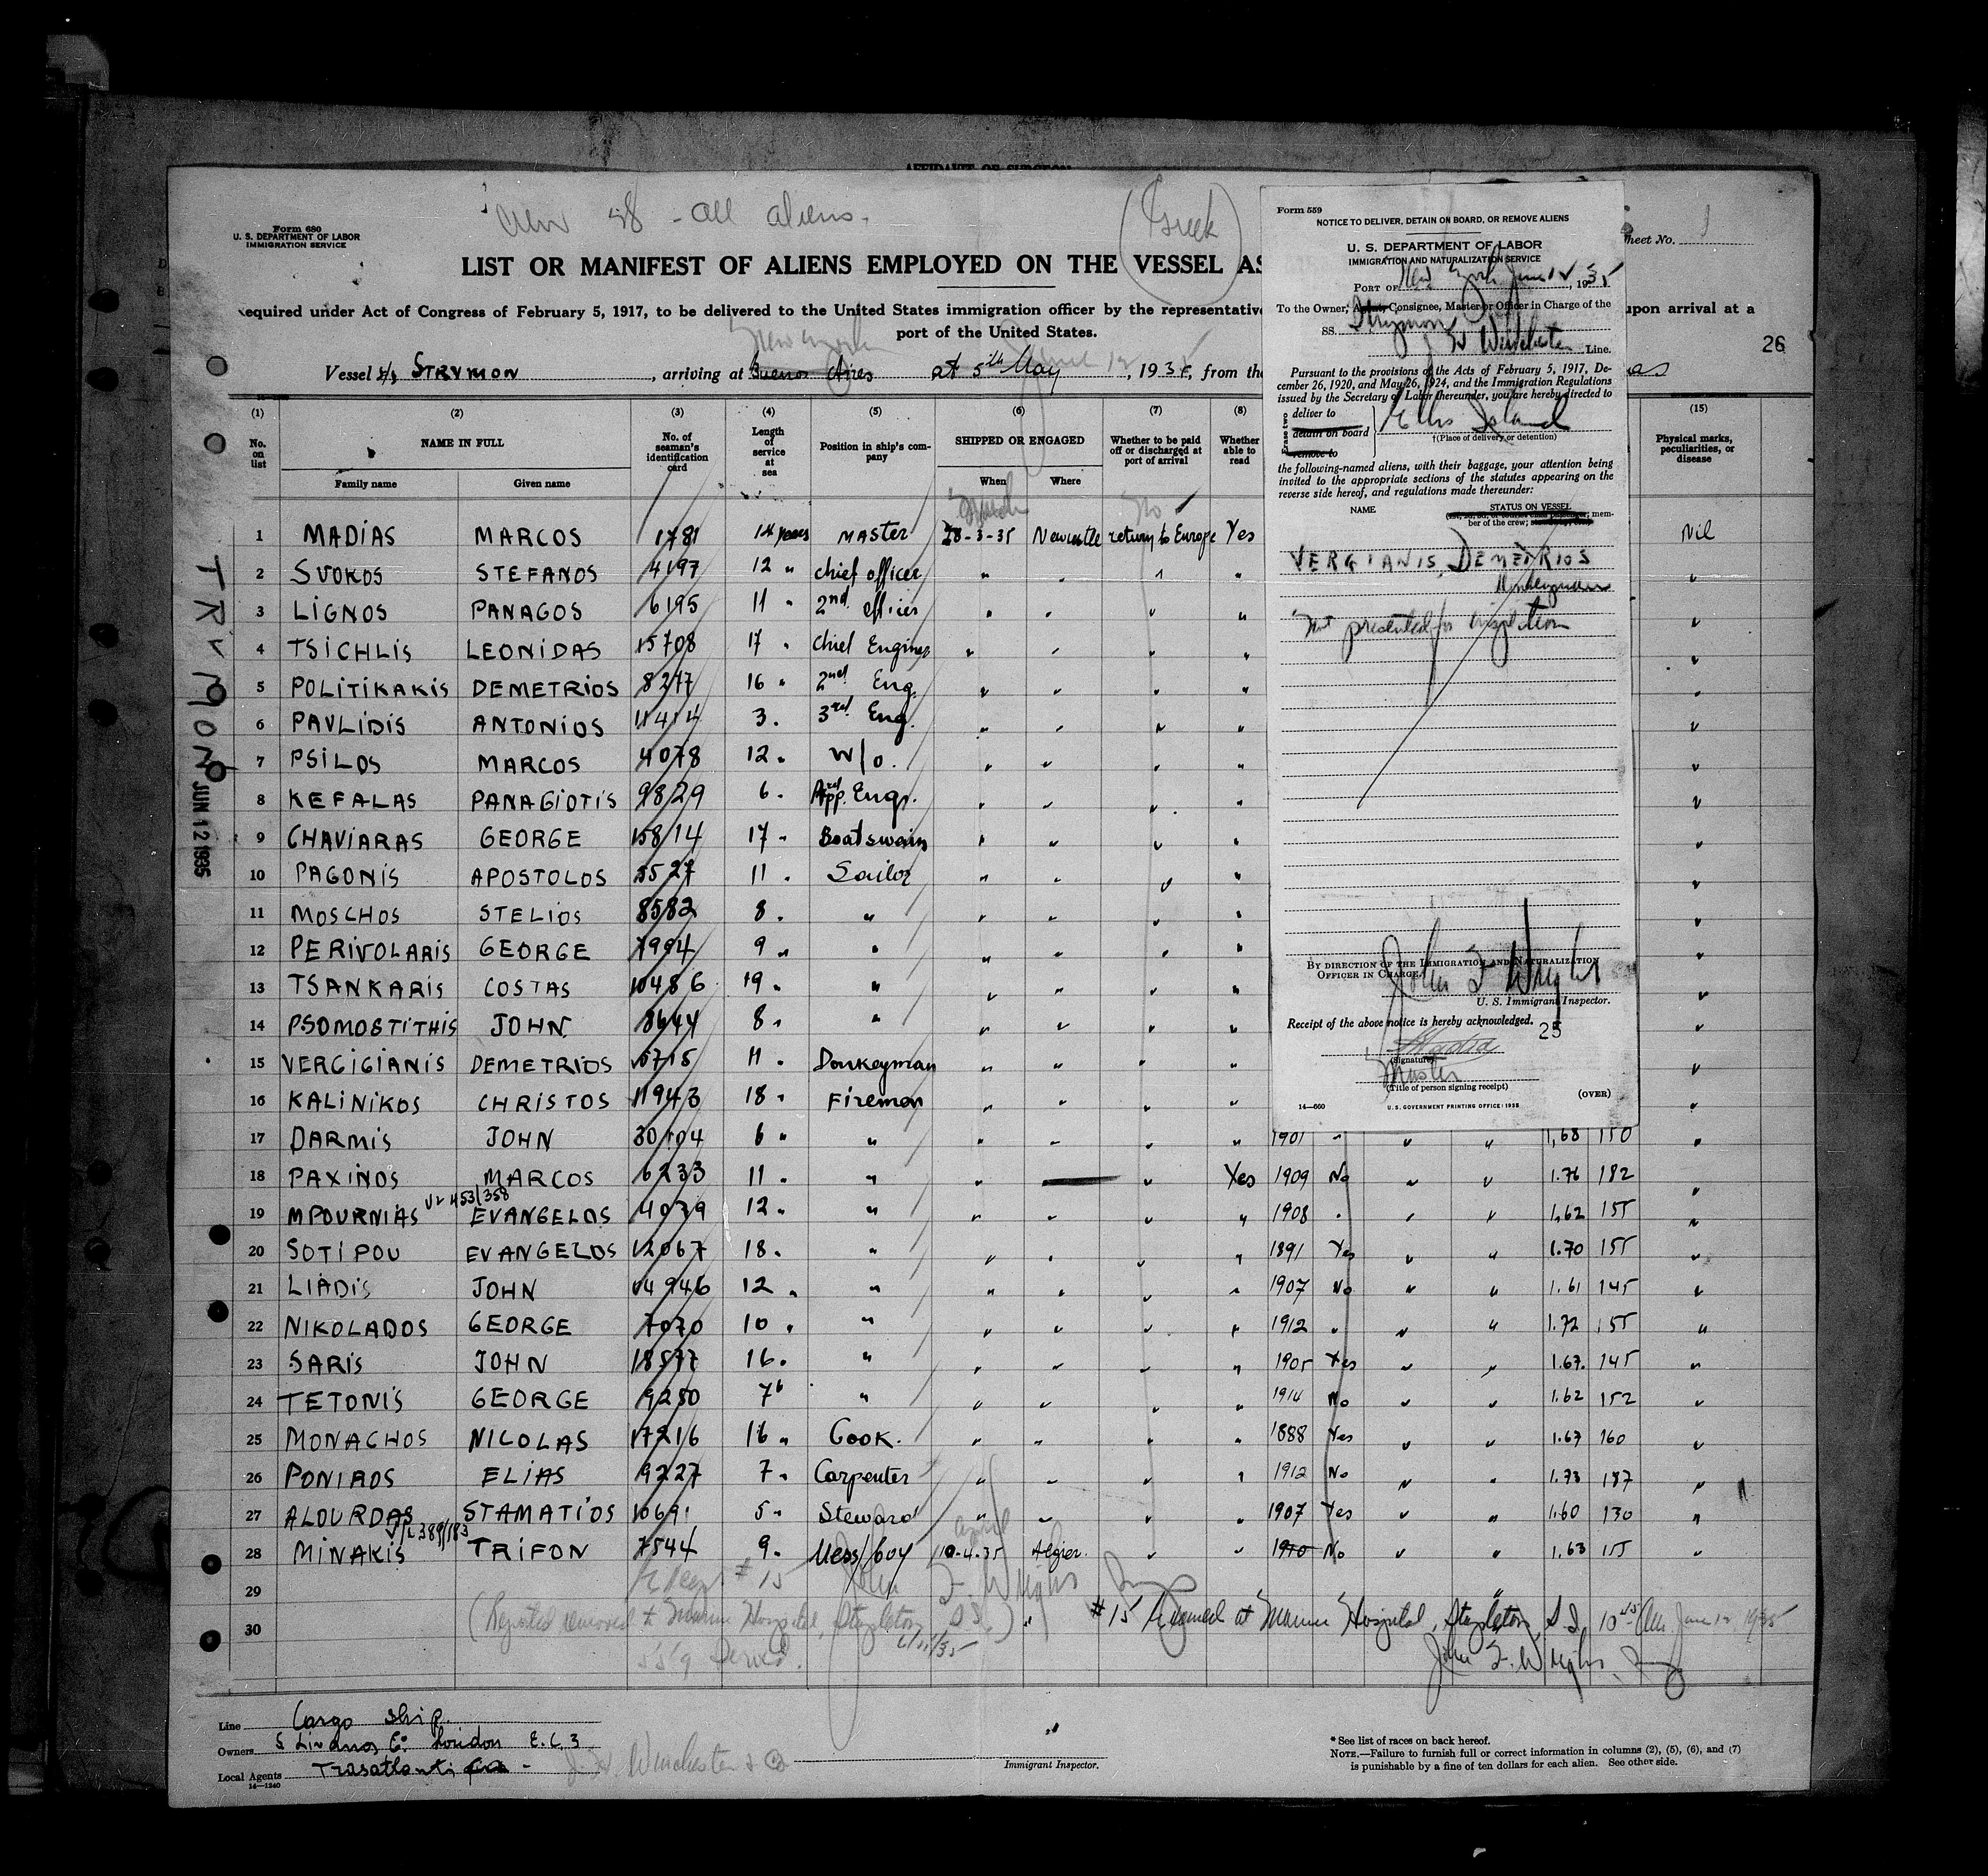 AFFIDAVIT OF SURGEON
Form 680
U. S. DEPARTMENT OF LABOR
IMMIGRATION SERVICE
Crew 28 - all aliens - (Greek)
Sheet No. 1
LIST OR MANIFEST OF ALIENS EMPLOYED ON THE VESSEL AS
Required under Act of Congress of February 5, 1917, to be delivered to the United States immigration officer by the representative upon arrival at a
port of the United States.
26
New York June 12
Vessel s/s STRYMON, arriving at Buenos Aires at 5th May, 1935, from the
(1) (2) (3) (4) (5) (6) (7) (8) (15)
No. on list
NAME IN FULL
Family name Given name
No. of seaman's identification card
Length of service at sea
Position in ship's company
SHIPPED OR ENGAGED
When Where
Whether to be paid off or discharged at port of arrival
Whether able to read
Physical marks, peculiarities, or disease
March No
1 MADIAS MARCOS 1781 14 years MASTER 28-3-35 Newcastle return to Europe Yes Nil
2 SVOKOS STEFANOS 4197 12 " chief officer " " " " "
3 LIGNOS PANAGOS 6195 11 " 2nd officer " " " " "
4 TSICHLIS LEONIDAS 15708 17 " Chief Engineer " " " " "
5 POLITIKAKIS DEMETRIOS 8277 16 " 2nd Eng. " " " " "
6 PAVLIDIS ANTONIOS 11414 3 " 3rd Eng. " " " " "
7 PSILOS MARCOS 4078 12 " W/o. " " " " "
8 KEFALAS PANAGIOTIS 9829 6 " App. Engr. " " " " "
9 CHAVIARAS GEORGE 15814 17 " Boatswain " " " " "
10 PAGONIS APOSTOLOS 5527 11 " Sailor " " " " "
11 MOSCHOS STELIOS 8582 8 " " " " " " "
12 PERIVOLARIS GEORGE 7994 9 " " " " " " "
13 TSANKARIS COSTAS 10486 19 " " " " " " "
14 PSOMOSTITHIS JOHN 8644 8 " " " " " " "
15 VERGIGIANIS DEMETRIOS 5715 11 " Donkeyman " " " " "
16 KALINIKOS CHRISTOS 11943 18 " Fireman " " " " "
17 DARMIS JOHN 30104 6 " " " " " " 1901 " " " 1,68 150 "
18 PAXINOS MARCOS 6233 11 " " " " Yes 1909 No " " 1.76 182 "
453/358
19 MPOURNIAS EVANGELOS 4079 12 " " " " " " 1908 " " " 1,62 155 "
20 SOTIPOU EVANGELOS 12067 18 " " " " " " 1891 Yes " " 1.70 155 "
21 LIADIS JOHN 14946 12 " " " " " " 1907 No " " 1.61 145 "
22 NIKOLADOS GEORGE 7070 10 " " " " " " 1912 " " " 1.72 155 "
23 SARIS JOHN 18577 16 " " " " " " 1905 Yes " " 1.67 145 "
24 TETONIS GEORGE 9250 7 " " " " " " 1914 No " " 1.62 152 "
25 MONACHOS NICOLAS 17216 16 " Cook. " " " " 1888 Yes " " 1.67 160 "
26 PONIROS ELIAS 9227 7 " Carpenter " " " " 1912 No " " 1.73 187 "
27 ALOURDAS STAMATIOS 10691 5 " Steward " " " " 1907 Yes " " 1.60 130 "
389/183 April
28 MINAKIS TRIFON 7544 9 " Mess/boy 10-4-35 Algier. " " 1910 No " " 1.63 155 "
29 # 15 John F. Wright
30 (Reported removed to Marine Hospital, Stapleton, S.I.) 6/11/35
#15 Examined at Marine Hospital, Stapleton, S.I. 10 45 AM June 12 1935
559 Served.
John F. Wright
Line Cargo ship.
Owners S Livanos Co London E.C.3
Local Agents Trasatlantica - J. H. Winchester & Co
14—1240
Immigrant Inspector.
* See list of races on back hereof.
NOTE.—Failure to furnish full or correct information in columns (2), (5), (6), and (7)
is punishable by a fine of ten dollars for each alien. See other side.
JUN 12 1935
Form 559
NOTICE TO DELIVER, DETAIN ON BOARD, OR REMOVE ALIENS
U. S. DEPARTMENT OF LABOR
IMMIGRATION AND NATURALIZATION SERVICE
PORT OF New York June 12, 1935
To the Owner, Agent, Consignee, Master or Officer in Charge of the
SS. Strymon
J H Winchester Line.
Pursuant to the provisions of the Acts of February 5, 1917, De-
cember 26, 1920, and May 26, 1924, and the Immigration Regulations
issued by the Secretary of Labor thereunder, you are hereby directed to
Erase two
deliver to
detain on board
remove to
Ellis Island
†(Place of delivery or detention)
the following-named aliens, with their baggage, your attention being
invited to the appropriate sections of the statutes appearing on the
reverse side hereof, and regulations made thereunder:
NAME STATUS ON VESSEL
mem-
ber of the crew;
VERGIANIS, DEMETRIOS
Donkeyman
Not presented for inspection
BY DIRECTION OF THE IMMIGRATION AND NATURALIZATION
OFFICER IN CHARGE.
John F Wright
U. S. Immigrant Inspector.
Receipt of the above notice is hereby acknowledged.
25
(Signature)
Master
(Title of person signing receipt)
(OVER)
14—660 U. S. GOVERNMENT PRINTING OFFICE: 1935